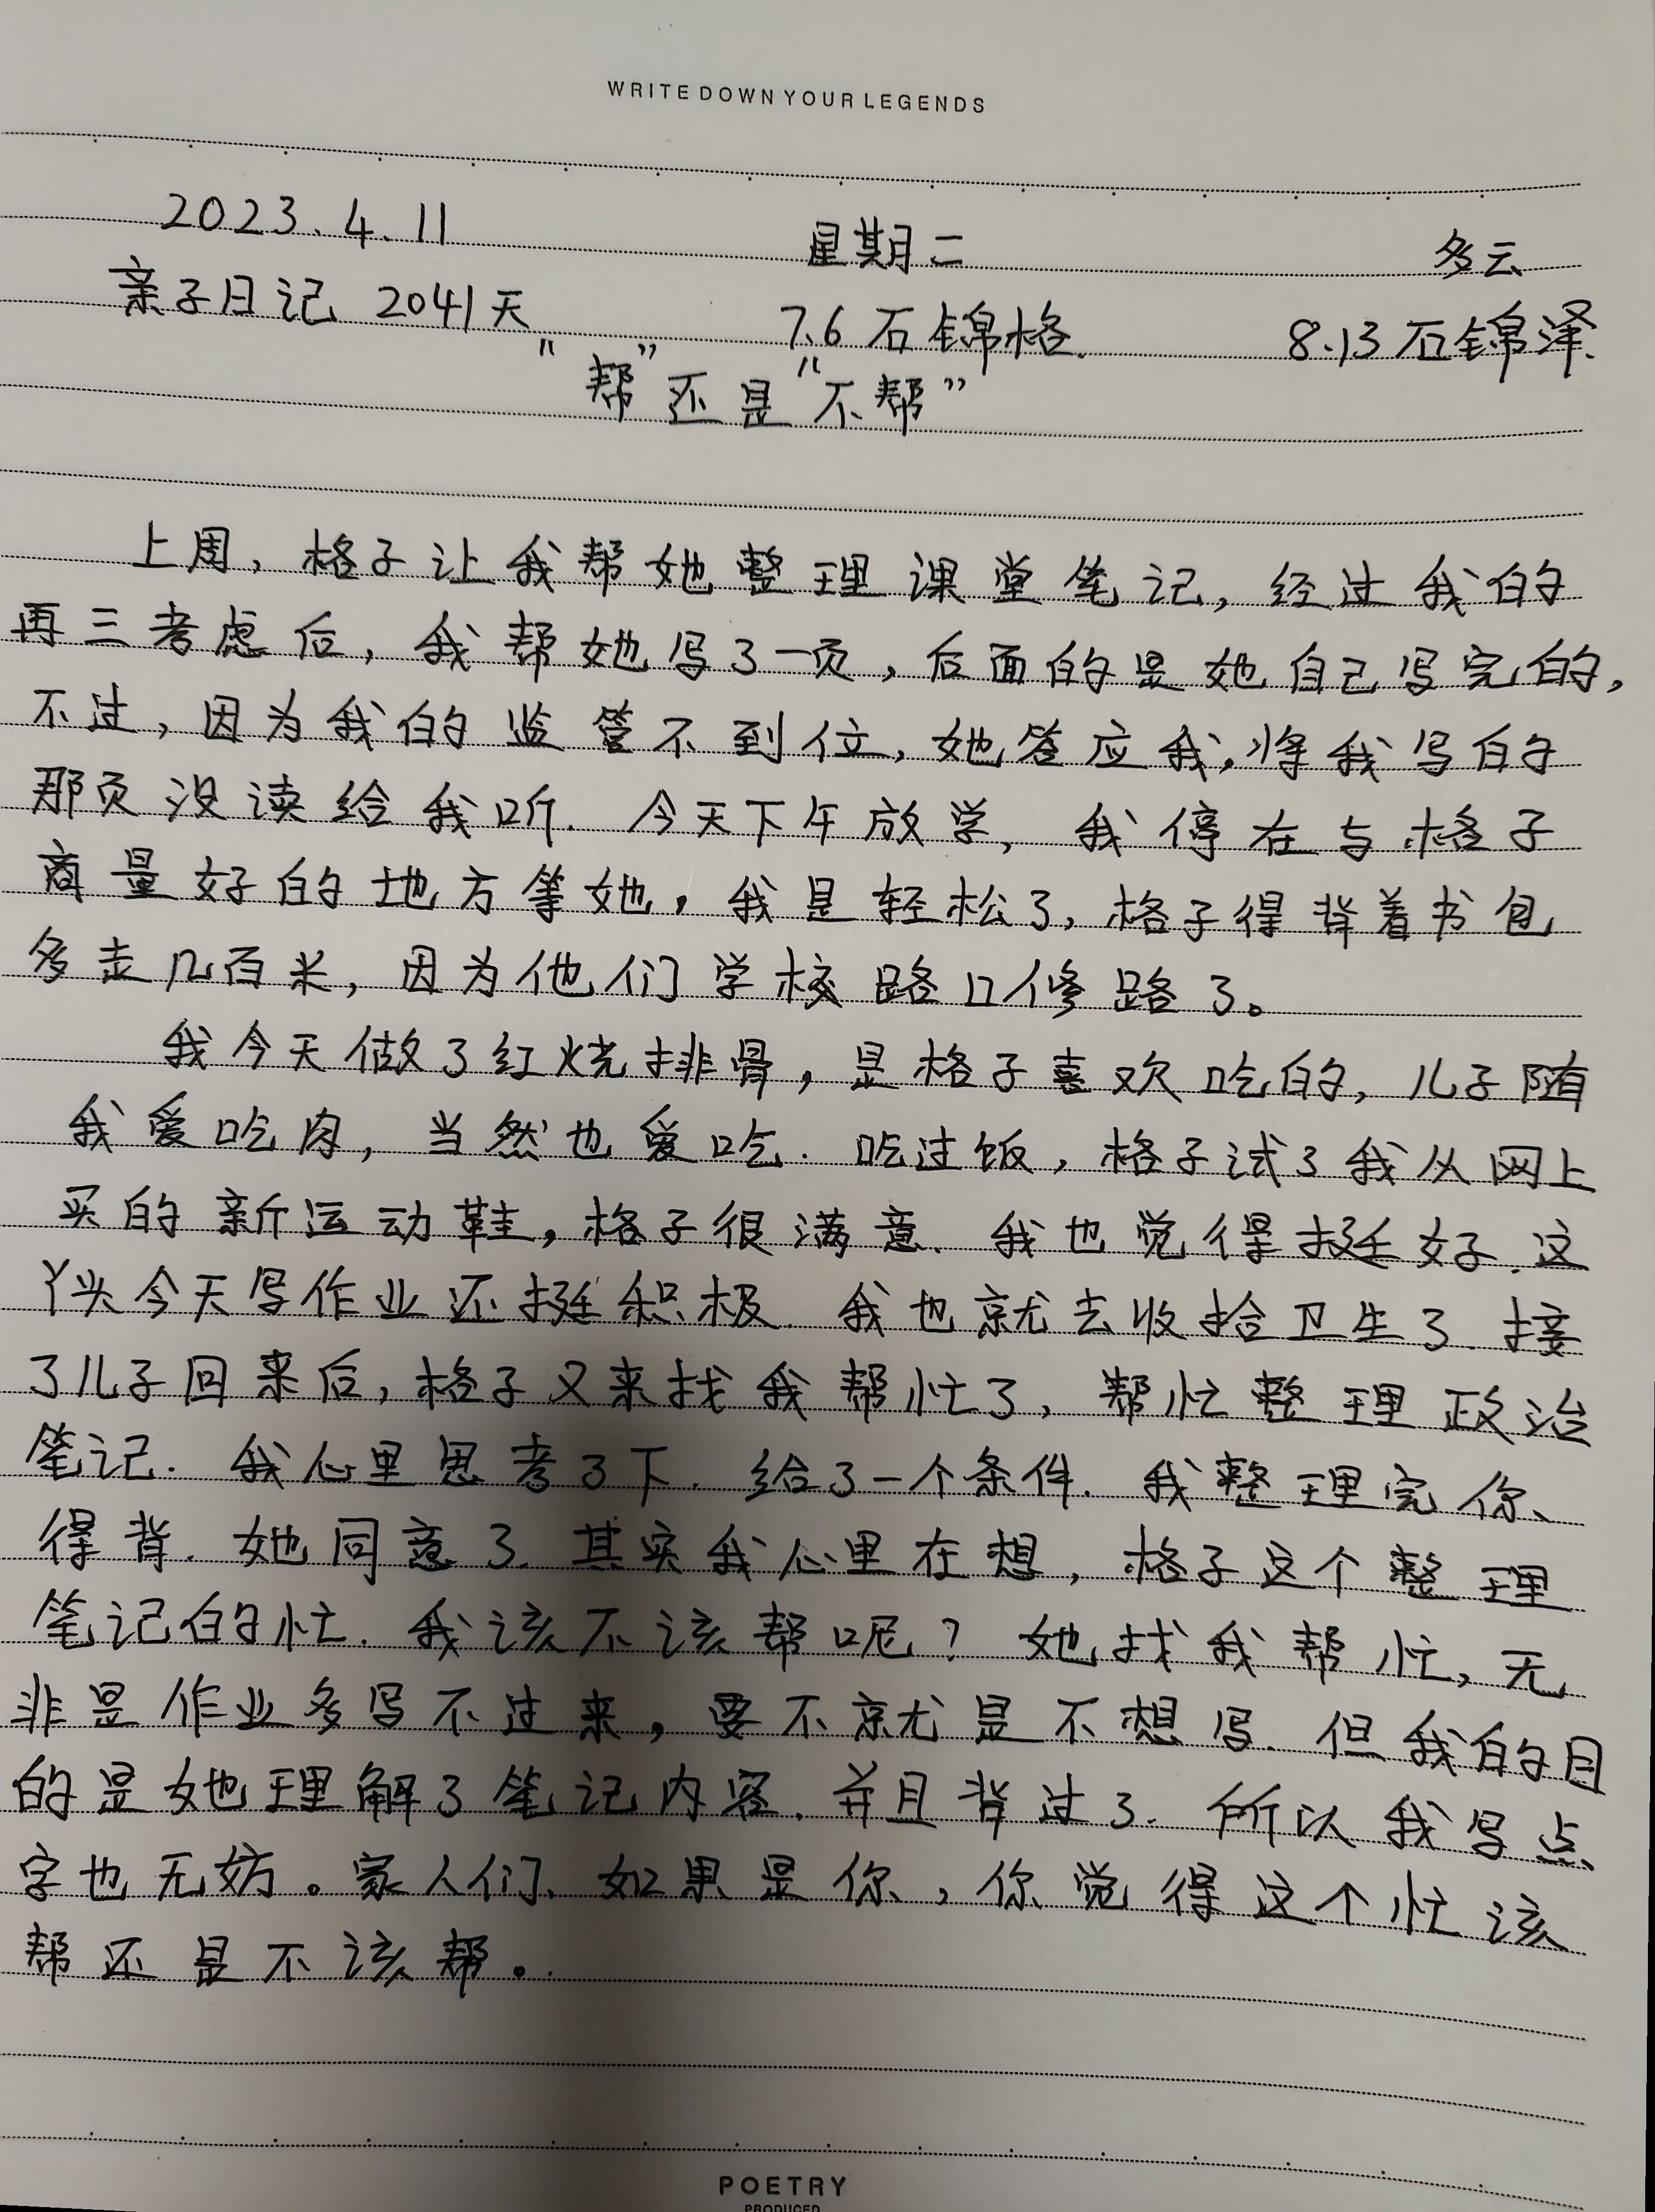 WRITE DOWN YOUR LEGENDS
2023.4.11 星期二 多云
亲子日记 2041天 7.6石锦格. 8.13石锦泽.
“帮”还是“不帮”
上周,格子让我帮她整理课堂笔记,经过我的
再三考虑后,我帮她写了一页,后面的是她自己写完的,
不过,因为我的监管不到位,她答应我,将我写的
那页没读给我听.今天下午放学,我停在与格子
商量好的地方等她,我是轻松了,格子得背着书包
多走几百米,因为他们学校路口修路了。
我今天做了红烧排骨,是格子喜欢吃的,儿子随
我爱吃肉,当然也爱吃.吃过饭,格子试了我从网上
买的新运动鞋,格子很满意.我也觉得挺好.这
丫头今天写作业还挺积极.我也就去收拾卫生了.接
了儿子回来后,格子又来找我帮忙了,帮忙整理政治
笔记.我心里思考了下.给了一个条件.我整理完你、
得背.她同意了.其实我心里在想,格子这个整理
笔记的忙.我该不该帮呢?她找我帮忙,无
非是作业多写不过来,要不就是不想写.但我的目
的是她理解了笔记内容.并且背过了.所以我写点
字也无妨。家人们、如果是你、,你觉得这个忙该
帮还是不该帮。.
POETRY
PRODUCED